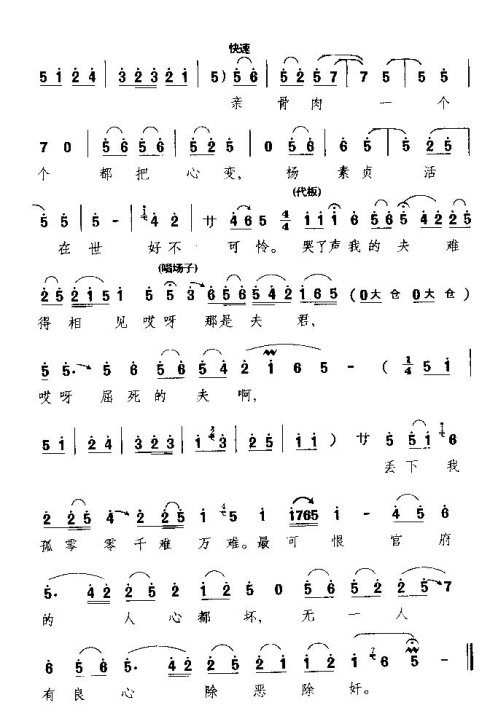 快速
5 1 2 4 | 3 2 3 2 1 | 5 ) 5 6 | 5 2 5 7 | 7 5 | 5 5 |
亲 骨 肉 一 个
7 0 | 5 6 5 6 | 5 2 5 | 0 5 6 | 6 5 5 | 5 2 5 |
个 都 把 心 变, 杨 素 贞 活
(代板)
5 5 | 5 - | 4 2 | 廿 4 6 5 4/4 1 1 1 6 5 6 5 4 2 2 5
在 世 好 不 可 怜。 哭 了 声 我 的 夫 难
(唱场子)
2 5 2 1 5 1 5 5 3 6 5 6 5 4 2 1 6 5 ( 0 大 仓 0 大 仓 )
得 相 见 哎 呀 那 是 夫 君,
5 5· 5 6 5 6 5 4 2 1 6 5 - ( 1/4 5 1 |
哎 呀 屈 死 的 夫 啊,
5 1 | 2 4 | 3 2 3 | 1 3 | 2 5 | 1 1 | ) 廿 5 5 1 6
丢 下 我
2 2 5 4 2 2 5 1 5 1 1765 1 - 4 5 6
孤 零 零 千 难 万 难。最 可 恨 官 府
5· 4 2 2 5 2 1 2 5 0 5 6 5 2 2 5 7
的 人 心 都 坏, 无 一 人
6 5 6 5 5· 4 2 2 5 2 1 1 2 1 6 5 - ‖
有 良 心 除 恶 除 奸。